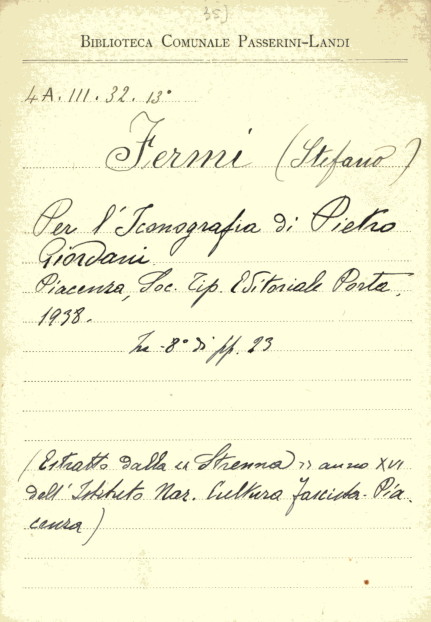 35]
BIBLIOTECA COMUNALE PASSERINI-LANDI
4A.III.32.13°
Fermi (Stefano)
Per l'Iconografia di Pietro
Giordani
Piacenza, Soc. Tip. Editoriale Porta.
1938.
In-8° di pp. 23
(Estratto dalla "Strenna" anno XVI
dell'Istituto Naz. Cultura fascista-Pia
cenza)